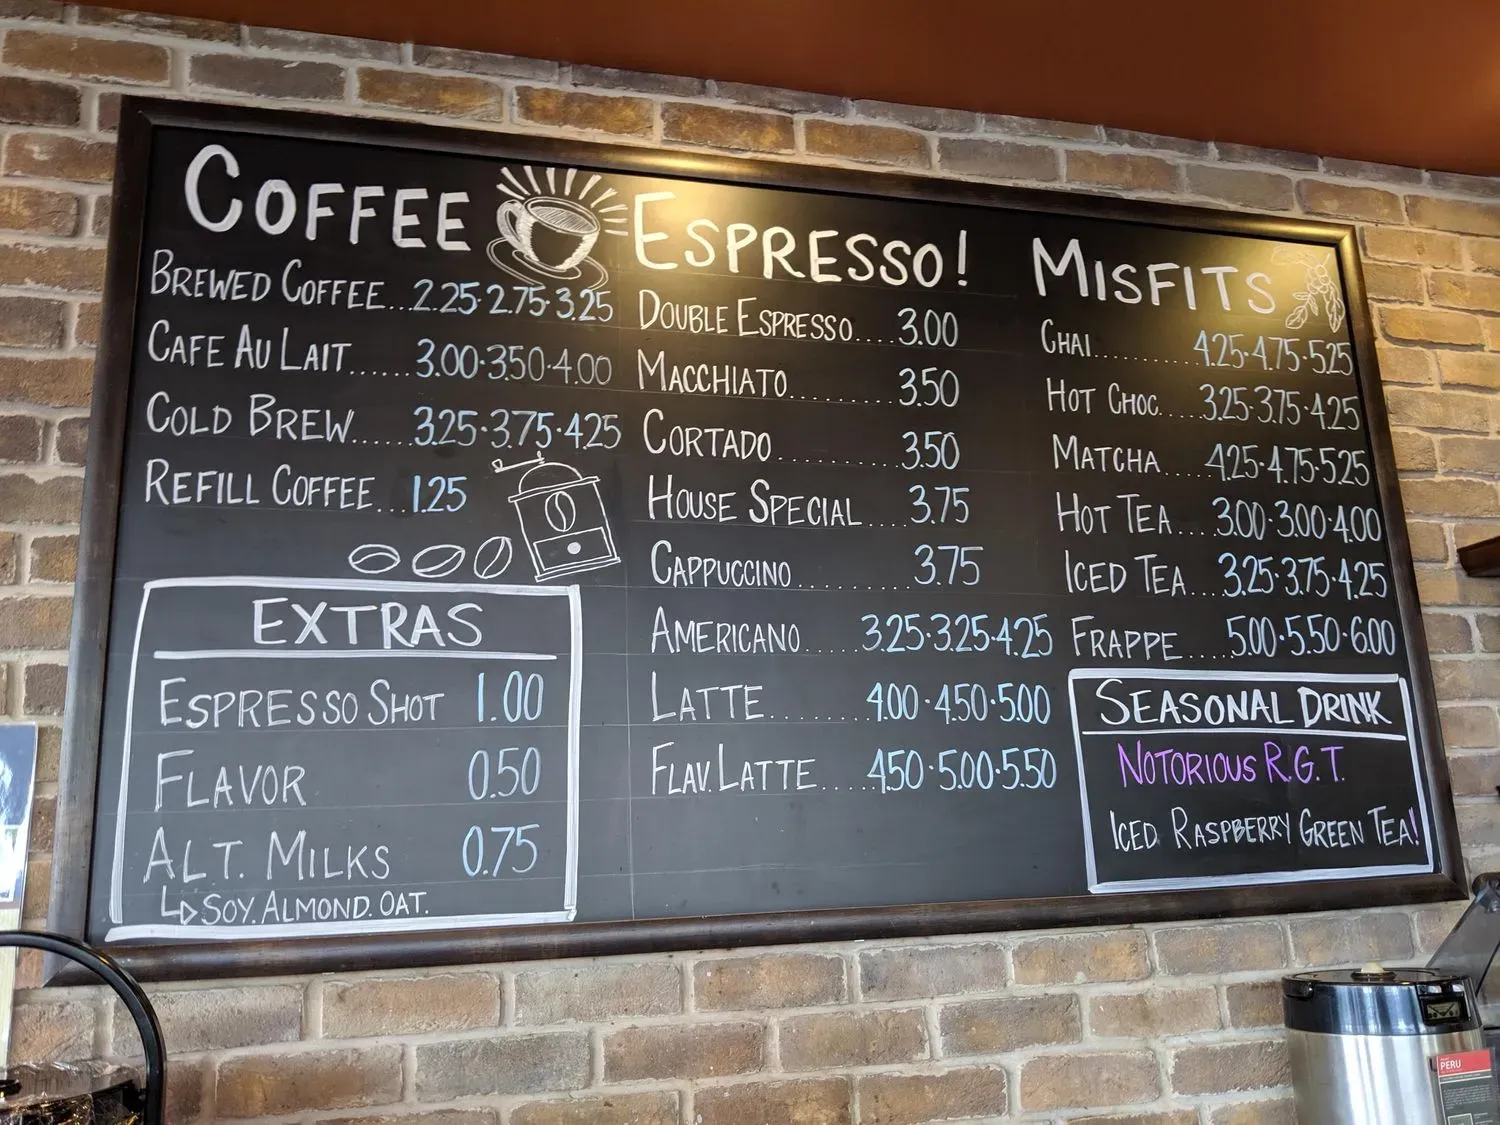 COFFEE
BREWED COFFEE...2.25·2.75·3.25
CAFE AU LAIT......3.00·3.50·4.00
COLD BREW......3.25·3.75·4.25
REFILL COFFEE...1.25
EXTRAS
ESPRESSO SHOT 1.00
FLAVOR 0.50
ALT. MILKS 0.75
SOY. ALMOND. OAT.
ESPRESSO!
DOUBLE ESPRESSO....3.00
MACCHIATO.........3.50
CORTADO..........3.50
HOUSE SPECIAL....3.75
CAPPUCCINO........3.75
AMERICANO.....3.25·3.25·4.25
LATTE........4.00·4.50·5.00
FLAV. LATTE....4.50·5.00·5.50
MISFITS
CHAI..........4.25·4.75·5.25
HOT CHOC.....3.25·3.75·4.25
MATCHA....4.25·4.75·5.25
HOT TEA....3.00·3.00·4.00
ICED TEA...3.25·3.75·4.25
FRAPPE.....5.00·5.50·6.00
SEASONAL DRINK
NOTORIOUS R.G.T.
ICED RASPBERRY GREEN TEA!
PERU